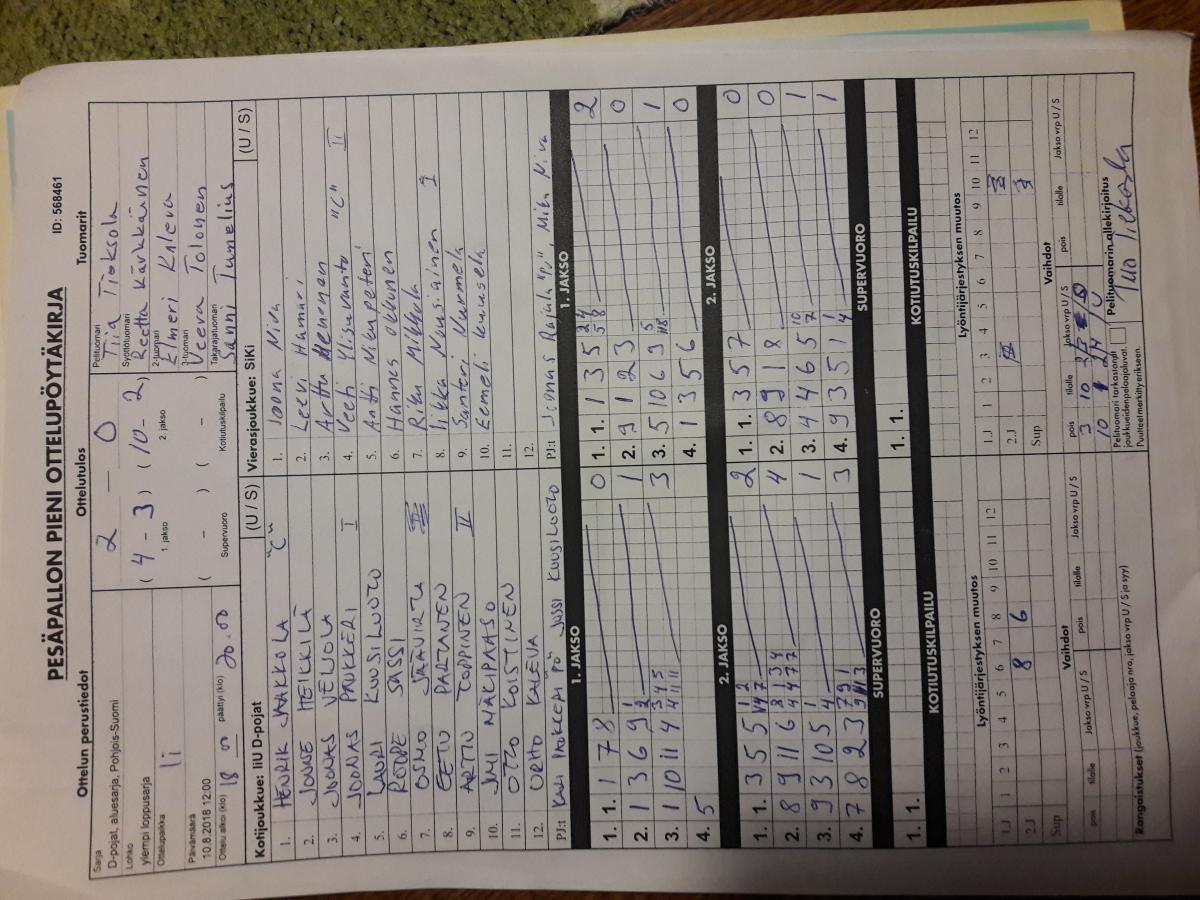 PESÄPALLON PIENI OTTELUPÖYTÄKIRJA
ID: 568461
Ottelun perustiedot
Ottelutulos
Tuomarit
Sarja
D-pojat, aluesarja, Pohjois-Suomi
Lohko
ylempi loppusarja
Ottelupaikka
Ii
Päivämäärä
10.8.2018 12:00
Ottelu alkoi (klo) 18 00 päättyi (klo) 20.00
2 - 0
( 4 - 3 ) ( 10 - 2 )
1. jakso 2. jakso
( - ) ( - )
Supervuoro Kotiutuskilpailu
Pelituomari
Tiia Tioksola
Syöttötuomari
Reetta Kärkkäinen
2-tuomari
Elmeri Kaleva
3-tuomari
Veera Tolonen
Takarajatuomari
Sanni Tumelius
Kotijoukkue: IiU D-pojat (U / S)
1. HENRIK JAAKKOLA "C"
2. JONNE HEIKKILÄ
3. JOONAS VEIJOLA
4. JOONAS PAUKKERI I
5. LAURI KUUSILUOTO
6. ROOPE SASSI
7. OSMO
8. EETU PARTANEN
9. ARTTU TOPPINEN II
10. JIMI MÄKIPAASO
11. OTTO KOISTINEN
12. ORHO KALEVA
PJ:t KARI PAUKKERI PÖ JUSSI KUUSILUOTO
Vierasjoukkue: SiKi (U / S)
1. Joona Niva
2. Leevi Hamari
3. Arttu
4. Veeti Ylisuvanto "C" II
5. Antti Mikupeteri
6. Hannes Okkonen
7. Riku Mikkola
8. Iikka Nuusiainen
9. Santeri Nurmela
10. Eemeli Kuusela
11.
12.
PJ:t Joonas Raiula "PJ", Mika Niva
1. JAKSO
1. 1. 1 7 8 0
2. 1 3 6 9 1
3. 1 10 11 4 3
4. 5
2. JAKSO
1. 1. 3 5 5 2
2. 8 9 11 6 4
3. 9 3 10 5 1
4. 7 8 2 3 3
SUPERVUORO
1. 1.
KOTIUTUSKILPAILU
1. JAKSO
1. 1. 1 3 5 2
2. 9 1 2 3 0
3. 5 10 6 3 1
4. 1 3 5 6 0
2. JAKSO
1. 1. 3 5 7 0
2. 8 9 1 8 0
3. 4 4 6 5 1
4. 9 3 5 1 1
SUPERVUORO
1. 1.
KOTIUTUSKILPAILU
Lyöntijärjestyksen muutos
1 2 3 4 5 6 7 8 9 10 11 12
1.J
2.J 8 6
Sup
Vaihdot
pois tilalle Jakso vrp U / S pois tilalle Jakso vrp U / S
Rangaistukset (joukkue, pelaaja nro, jakso vrp U / S ja syy)
Lyöntijärjestyksen muutos
1 2 3 4 5 6 7 8 9 10 11 12
1.J
2.J 7
Sup
Vaihdot
pois tilalle Jakso vrp U / S pois tilalle Jakso vrp U / S
3 10
10
Pelituomari tarkastanut joukkueiden pelaajaluvat.
Puutteet merkitty erikseen.
Pelituomarin allekirjoitus